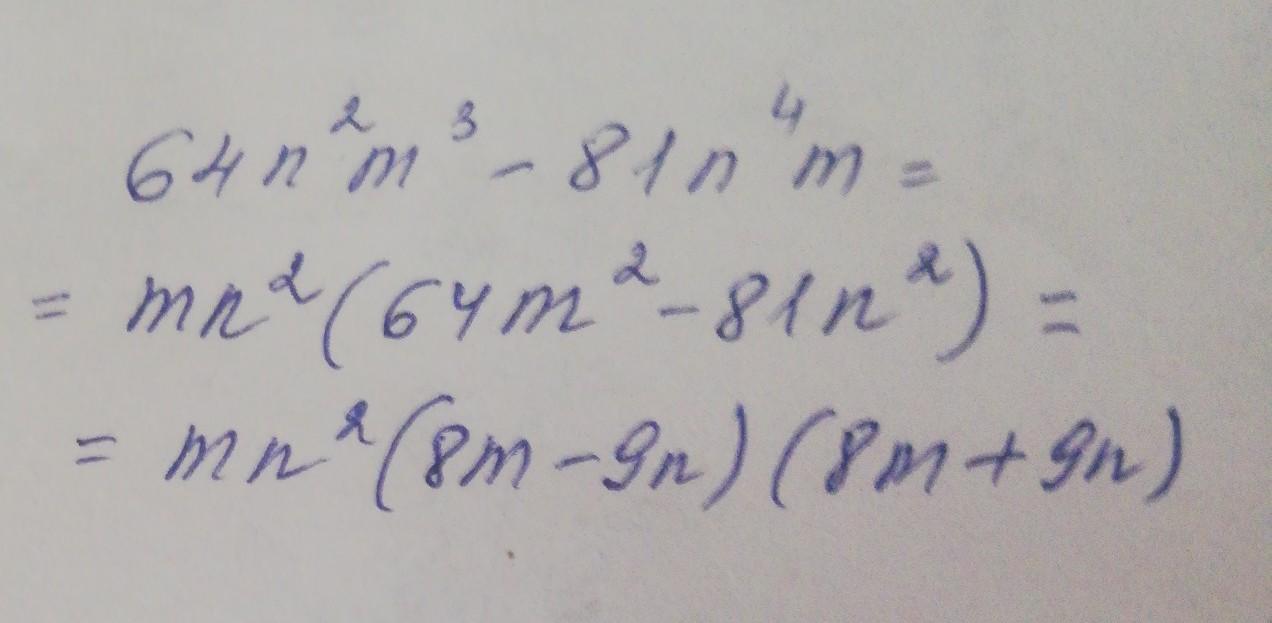 64n²m³ - 81n⁴m =
= mn²(64m² - 81n²) =
= mn²(8m - 9n)(8m + 9n)